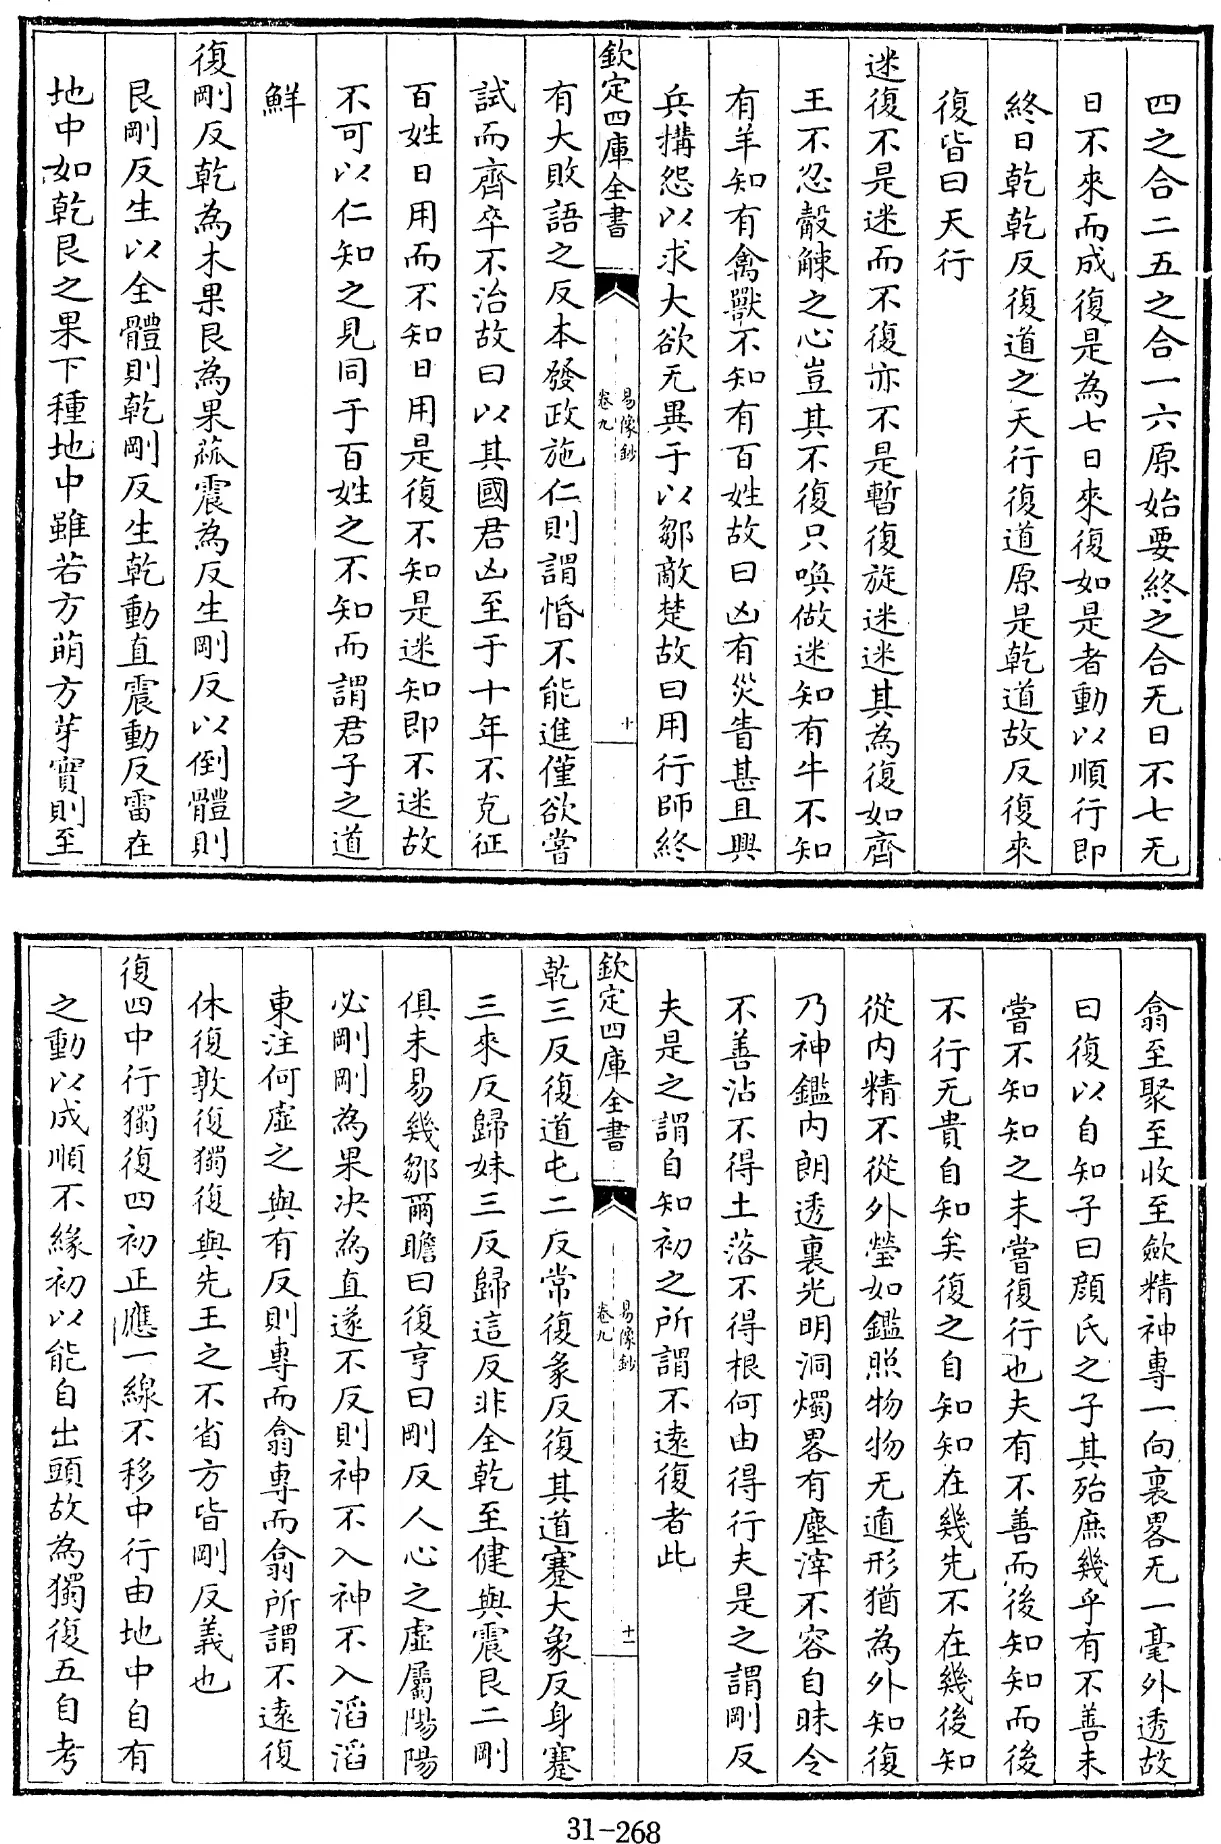 四之合二五之合一六原始要終之合无日不七无
日不來而成復是為七日來復如是者動以順行即
終日乾乾反復道之天行復道原是乾道故反復來
復皆曰天行
迷復不是迷而不復亦不是暫復旋迷迷其為復如齊
王不忍觳觫之心豈其不復只喚做迷知有牛不知
有羊知有禽獸不知有百姓故曰凶有災眚甚且興
兵搆怨以求大欲无異于以鄒敵楚故曰用行師終
欽定四庫全書
易像鈔
卷九
十
有大敗語之反本發政施仁則謂惛不能進僅欲嘗
試而齊卒不治故曰以其國君凶至于十年不克征
百姓日用而不知日用是復不知是迷知即不迷故
不可以仁知之見同于百姓之不知而謂君子之道
鮮
復剛反乾為木果艮為果蓏震為反生剛反以倒體則
艮剛反生以全體則乾剛反生乾動直震動反雷在
地中如乾艮之果下種地中雖若方萌方芽實則至
翕至聚至收至斂精神專一向裏畧无一毫外透故
曰復以自知子曰顔氏之子其殆庶幾乎有不善未
嘗不知知之未嘗復行也夫有不善而後知知而後
不行无貴自知矣復之自知知在幾先不在幾後知
從内精不從外瑩如鑑照物物无遁形猶為外知復
乃神鑑内朗透裏光明洞燭畧有塵滓不容自昧令
不善沾不得土落不得根何由得行夫是之謂剛反
夫是之謂自知初之所謂不遠復者此
欽定四庫全書
易像鈔
卷九
十一
乾三反復道屯二反常復彖反復其道蹇大象反身蹇
三來反歸妹三反歸這反非全乾至健與震艮二剛
俱未易幾鄒爾瞻曰復亨曰剛反人心之虛屬陽陽
必剛剛為果決為直遂不反則神不入神不入滔滔
東注何虛之與有反則專而翕專而翕所謂不遠復
休復敦復獨復與先王之不省方皆剛反義也
復四中行獨復四初正應一線不移中行由地中自有
之動以成順不緣初以能自出頭故為獨復五自考
31-268